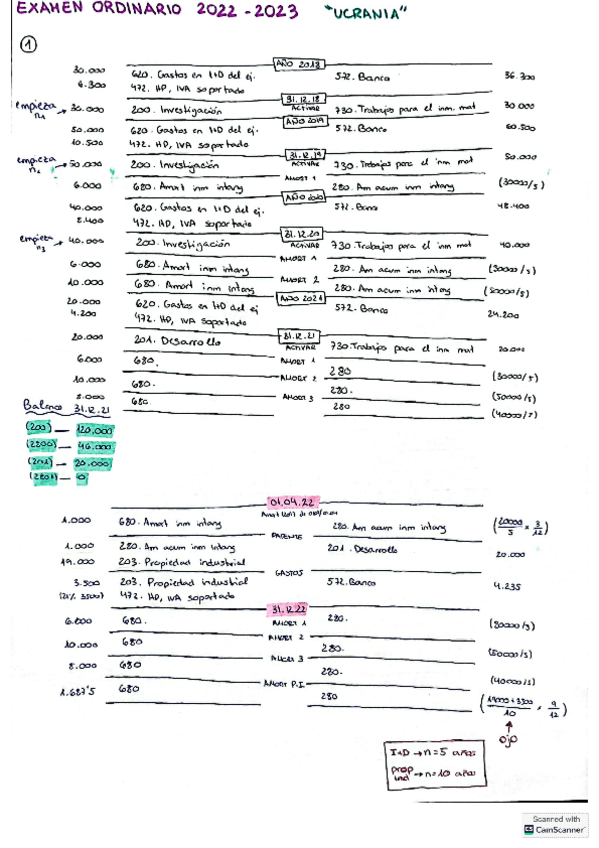 EXAMEN ORDINARIO 2022-2023 "UCRANIA"
1
AÑO 2018
30.000 620. Gastos en I+D del ej. 572. Banco 36.300
6.300 472. HP, IVA soportado
31.12.18
empieza n1 → 30.000 200. Investigación ACTIVAR 730. Trabajos para el inm. mat 30.000
AÑO 2019
50.000 620. Gastos en I+D del ej. 572. Banco 60.500
10.500 472. HP, IVA soportado
31.12.19
empieza n2 → 50.000 200. Investigación ACTIVAR 730. Trabajos para el inm mat 50.000
AMORT 1
6.000 680. Amort inm intang 280. Am acum inm intang (30000/5)
AÑO 2020
40.000 620. Gastos en I+D del ej. 572. Banco 48.400
8.400 472. HP, IVA soportado
31.12.20
empieza n3 → 40.000 200. Investigación ACTIVAR 730. Trabajos para el inm mat 40.000
AMORT 1
6.000 680. Amort inm intang 280. Am acum inm intang (30000/5)
AMORT 2
10.000 680. Amort inm intang 280. Am acum inm intang (50000/5)
AÑO 2021
20.000 620. Gastos en I+D del ej 572. Banco 24.200
4.200 472. HP, IVA soportado
31.12.21
20.000 201. Desarrollo ACTIVAR 730. Trabajos para el inm mat 20.000
AMORT 1
6.000 680. 280 (30000/5)
AMORT 2
10.000 680. 280. (50000/5)
AMORT 3
8.000 680. 280 (40000/5)
Balance 31.12.21
(200) — 120.000
(2800) — 46.000
(201) — 20.000
(2801) — 0
01.04.22
1.000 680. Amort inm intang 280. Am acum inm intang (20000/5 x 3/12)
PATENTE
1.000 280. Am acum inm intang 201. Desarrollo 20.000
19.000 203. Propiedad industrial
GASTOS
3.500 203. Propiedad industrial 572. Banco 4.235
(21% 3500) 472. HP, IVA soportado
31.12.22
6.000 680. AMORT 1 280. (30000/5)
AMORT 2
10.000 680 280. (50000/5)
AMORT 3
8.000 680 280. (40000/5)
AMORT P.I.
1.687'5 680 280 (19000+3500/10 x 9/12)
↑
ojo
I+D → n=5 años
prop ind → n=10 años
Scanned with
CamScanner